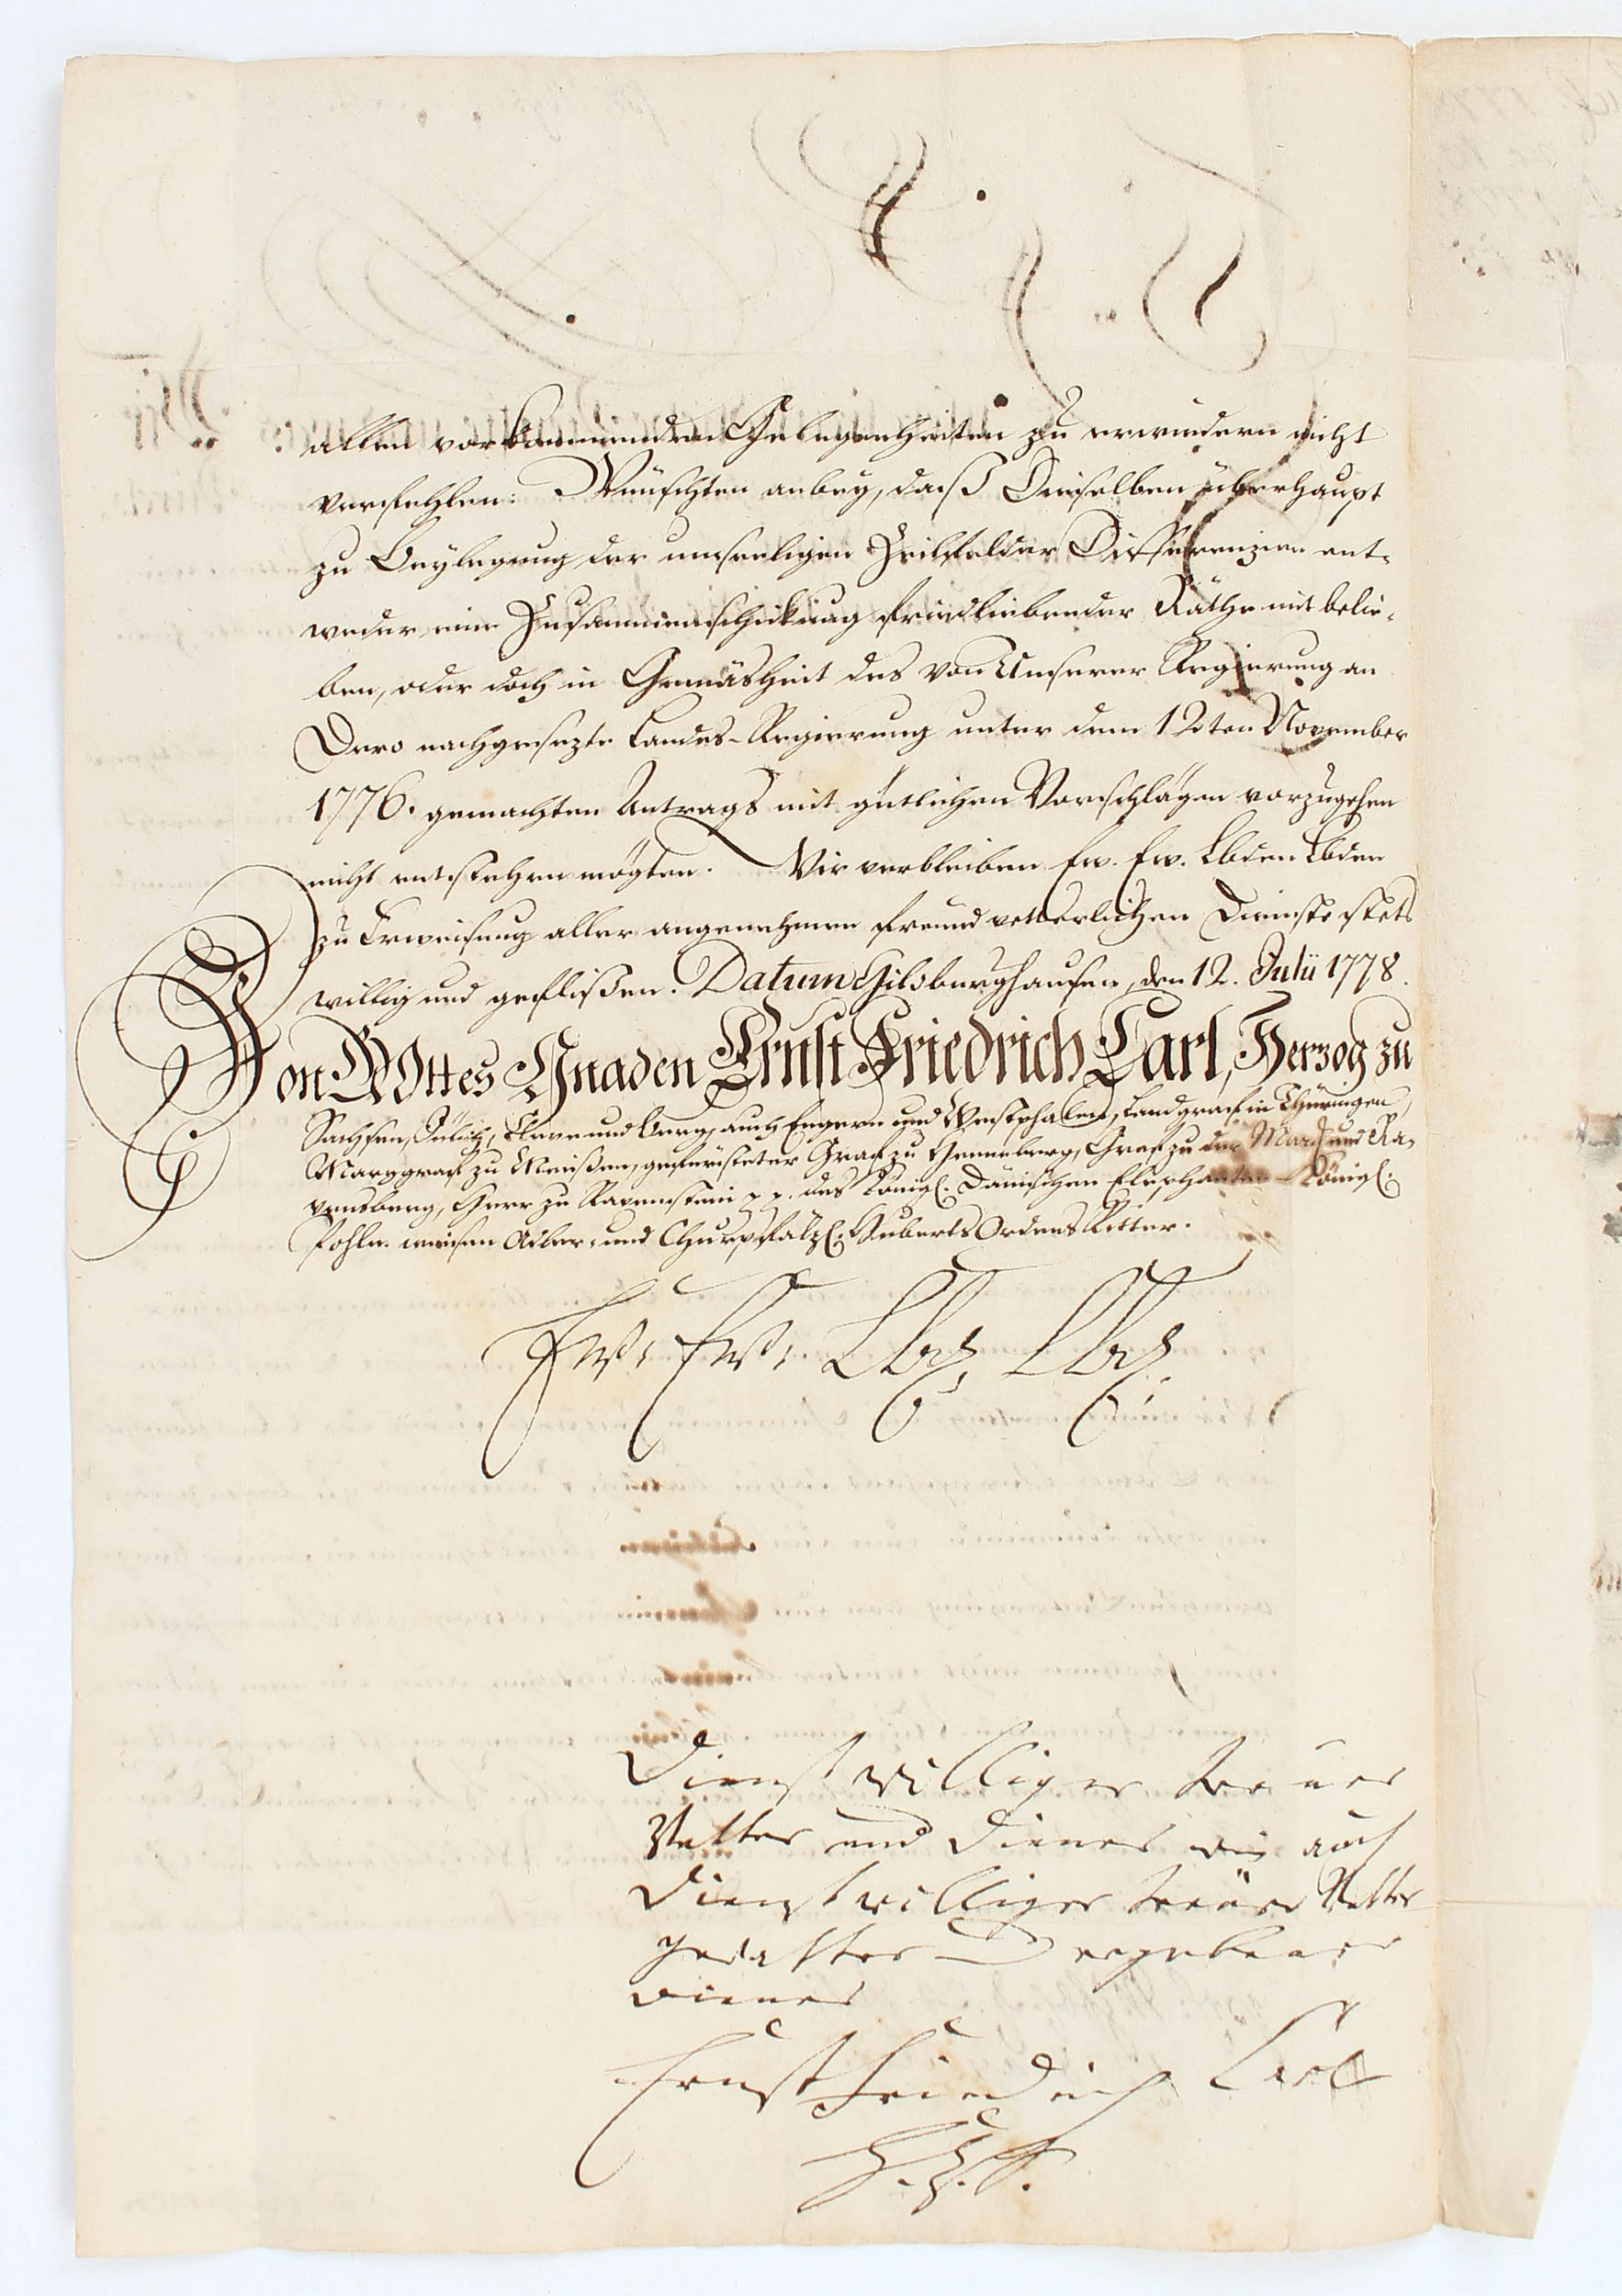 allen vorkommenden Gelegenheiten zu erwiedern nicht
verfehlen. Wünschten anbey, daß Dieselben überhaupt
zu Beylegung der unseeligen Heldfelder Differenzien ent-
weder eine Zusammenschickung friedliebender Räthe mit belie-
ben, oder doch in Gemäsheit des von Unserer Regierung an
Dero nachgesezte Landes-Regierung unter dem 12ten November
1776. gemachten Antrags mit gütlichen Vorschlägen vorzugehen
nicht entstehen mögten. Wir verbleiben Ew. Ew. Lbden Lbden
zu Erweisung aller angenehmen freund vetterlichen Dienste stets
willig und geflißen. Datum Hildburghausen, den 12. Julii 1778.
Von GOttes Gnaden Ernst Friedrich Carl, Herzog zu
Sachsen, Jülich, Cleve und Berg, auch Engern und Westphalen, Landgraf in Thüringen,
Marggraf zu Meißen, gefürsteter Graf zu Henneberg, Graf zu der Marck und Ra-
vensberg, Herr zu Ravenstein p. p. des Königl. Dänischen Elephanten- Königl.
Pohln. weisen Adler- und Churpfälzl. Huberts Ordens Ritter.
Ew. Ew. Lbd. Lbd.
Dienstwilliger treuer
Vetter und Diener wie auch
dienstwilliger treüer Vetter
Gevatter und ergebener
diener
Ernst Friedrich Carl
H.Z.S.